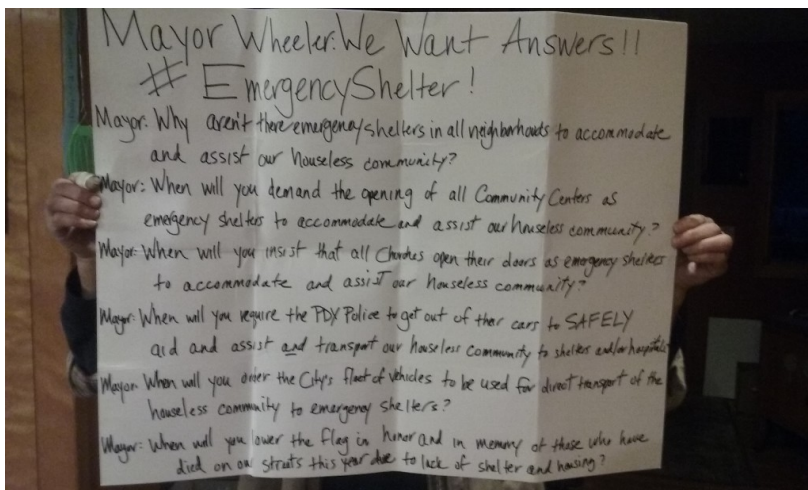 Mayor Wheeler: We Want Answers!!
# EmergencyShelter!
Mayor: Why aren't there emergency shelters in all neighborhoods to accommodate
and assist our houseless community?
Mayor: When will you demand the opening of all Community Centers as
emergency shelters to accommodate and assist our houseless community?
Mayor: When will you insist that all Churches open their doors as emergency shelters
to accommodate and assist our houseless community?
Mayor: When will you require the PDX Police to get out of their cars to SAFELY
aid and assist and transport our houseless community to shelters and/or hospitals
Mayor: When will you order the City's fleet of vehicles to be used for direct transport of the
houseless community to emergency shelters?
Mayor: When will you lower the flag in honor and in memory of those who have
died on our streets this year due to lack of shelter and housing?